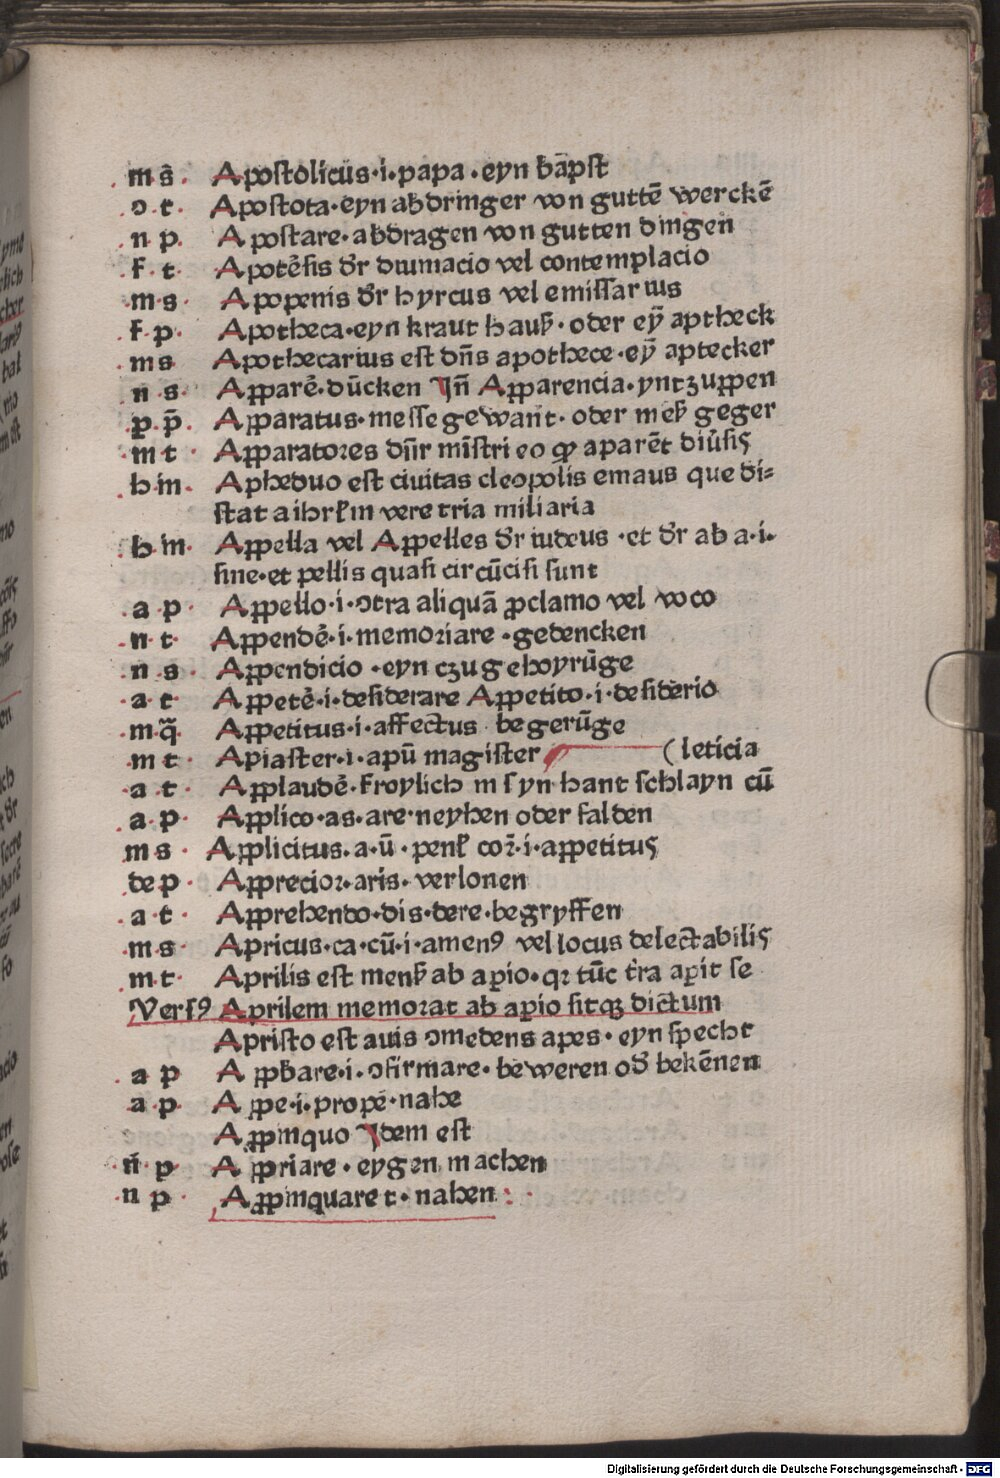 m s̄ · Apostolicus·i·papa·eyn bāpst
ɔ·t· Apostota·eyn abdringer von guttē werckē
n p· Apostare·abdragen von gutten dingen
f·t· Apotēsis dr̄ diuinacio vel contemplacio
m·s· Apopenis dr̄ hyrcus vel emissarius
f·p· Apotheca·eyn kraut hauß·oder eȳ aptheck
m s Apothecarius est dn̄s apothece·eȳ aptecker
n s· Apparē·dūcken Jn̄ Apparencia·yntzuppen
p·p̄· Apparatus·messe gewant·oder meß geger
m t · Apparatores dn̄r mīstri eo ꝙ aparēt diūsis
h m· Apheduo est ciuitas cleopolis emaus que di⸗
stat a ihrl̄m vere tria miliaria
h m· Appella vel Appelles dr̄ iudeus·et dr̄ ab a·i·
sine·et pellis quasi circūcisi sunt
a p· Appello·i·ɔtra aliquā ꝓclamo vel voco
n t· Appendē·i·memoriare·gedencken
n s · Appendicio·eyn czugehoyrūge
a·t· Appetē·i·desiderare Appetito·i·desiderio
m·q̄· Appetitus·i·affectus begerūge
m t· Apiaster·i·apū magister (leticia
a t· Applaudē·froylich in syn hant schlayn cū
a·p· Applico·as·are·neyhen oder falden
m s · Applicitus·a·ū·penl̄ cor̄·i·appetitus
de p · Apprecior·aris·verlonen
a·t· Apprehendo·dis·dere·begryffen
m·s· Apricus·ca·cū·i·amenꝰ vel locus delectabilis
m t· Aprilis est mens̄ ab aꝑio·qꝛ tūc tr̄a aꝑit se
Versꝰ Aprilem memorat ab aꝑio sitqꝫ dictum
Apristo est auis ɔmedens apes·eyn specht
a p Aꝓbare·i·ɔfirmare·beweren od̄ bekēnen
a·p· Aꝓpe·i·propē·nahe
Aꝓpinquo Jdem est
n̄ p Aꝓpriare·eygen machen
n p· Aꝓpinquare t·nahen:·
Digitalisierung gefördert durch die Deutsche Forschungsgemeinschaft - DFG